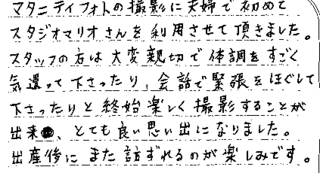 マタニティフォトの撮影に夫婦で初めて
スタジオマリオさんを利用させて頂きました。
スタッフの方は大変親切で体調をすごく
気遣って下さったり、会話で緊張をほぐして
下さったりと終始楽しく撮影することが
出来、とても良い思い出になりました。
出産後にまた訪ずれるのが楽しみです。